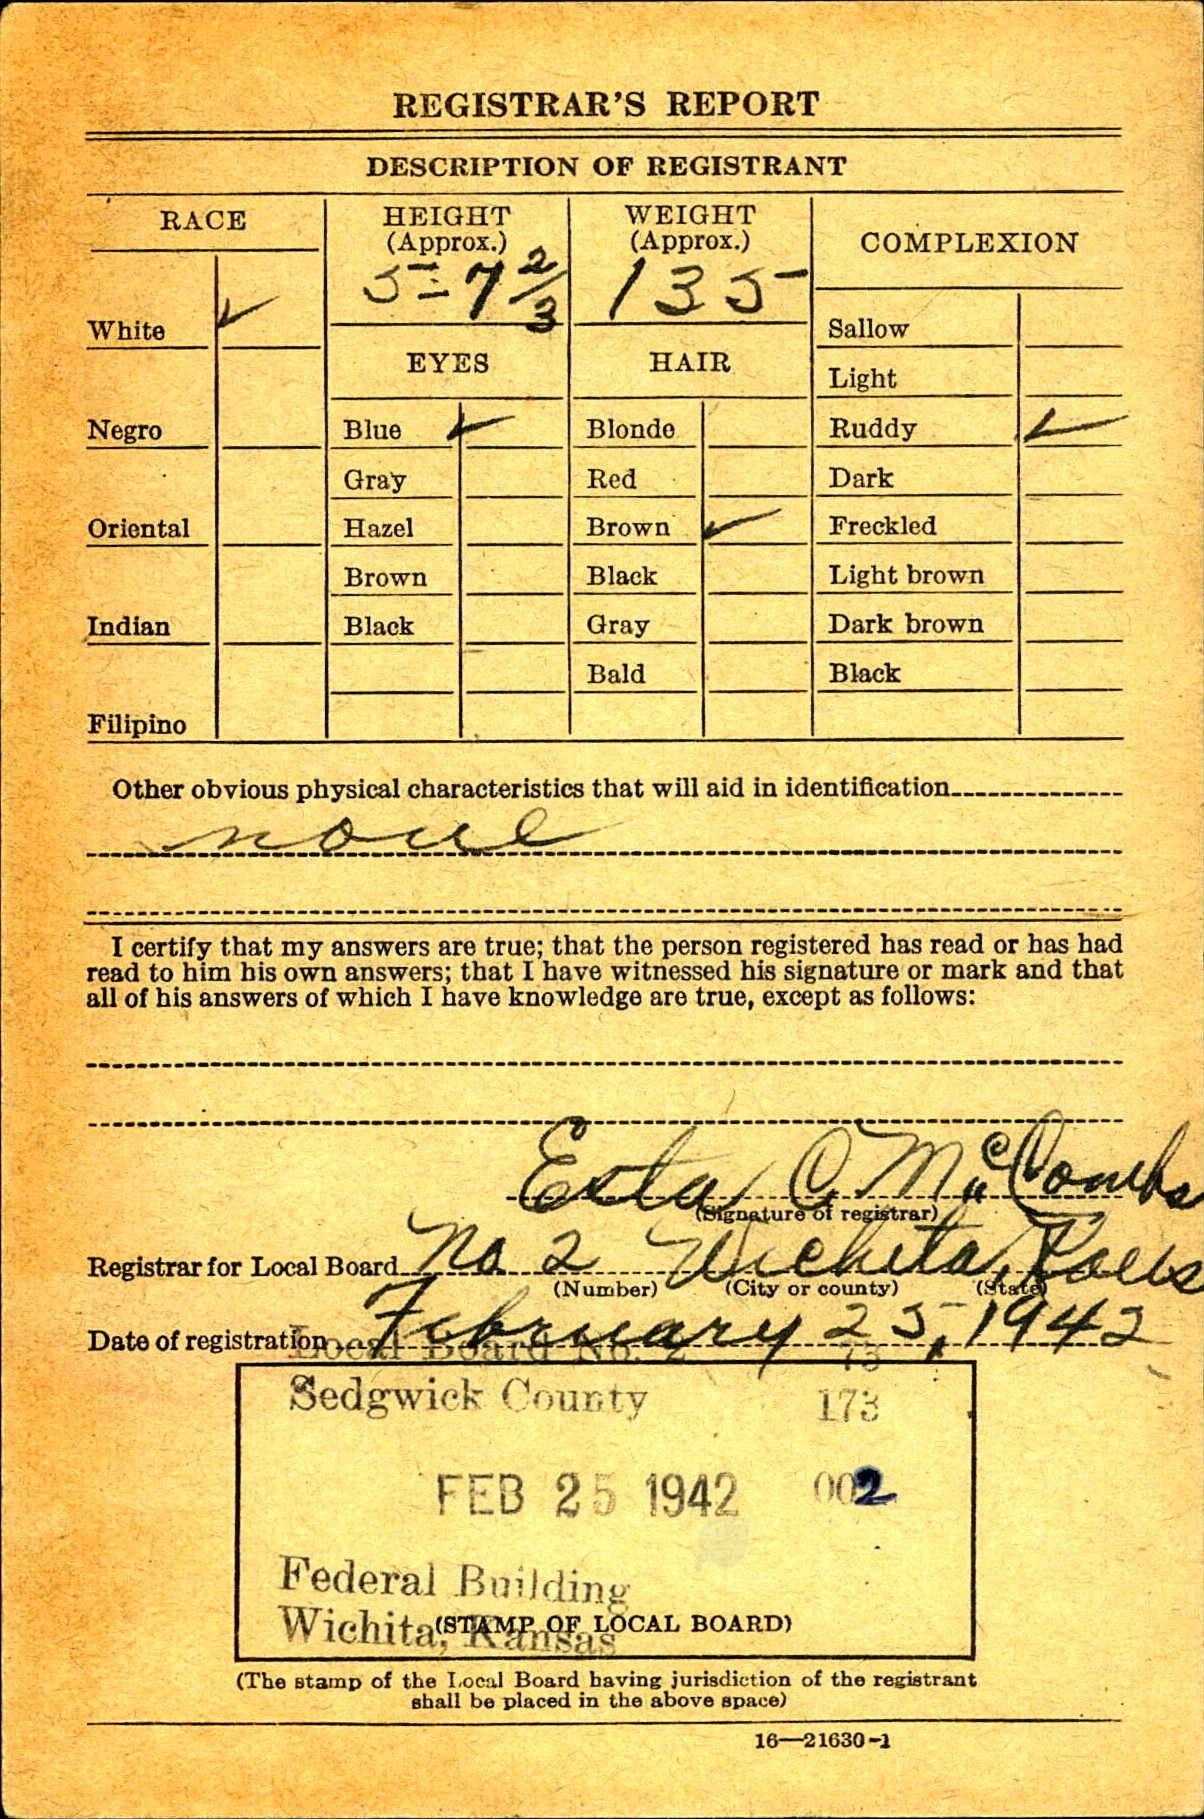 REGISTRAR'S REPORT
DESCRIPTION OF REGISTRANT
RACE
HEIGHT
(Approx.)
5-7 2/3
WEIGHT
(Approx.)
135
COMPLEXION
White ✓
Negro
Oriental
Indian
Filipino
EYES
Blue ✓
Gray
Hazel
Brown
Black
HAIR
Blonde
Red
Brown ✓
Black
Gray
Bald
Sallow
Light
Ruddy ✓
Dark
Freckled
Light brown
Dark brown
Black
Other obvious physical characteristics that will aid in identification
none
I certify that my answers are true; that the person registered has read or has had
read to him his own answers; that I have witnessed his signature or mark and that
all of his answers of which I have knowledge are true, except as follows:
Esta C. McCombs
(Signature of registrar)
Registrar for Local Board No. 2 Wichita, Kans
(Number) (City or county) (State)
Date of registration February 25, 1942
Local Board No. 2 73
Sedgwick County 173
FEB 25 1942 002
Federal Building
Wichita, Kansas
(STAMP OF LOCAL BOARD)
(The stamp of the Local Board having jurisdiction of the registrant
shall be placed in the above space)
16—21630-1